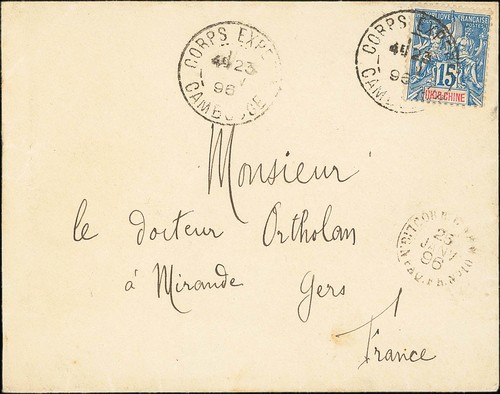 CORPS EXP
23
96
CAMBODGE
CORPS EXP
96
CAMBO
RÉPUBLIQUE FRANÇAISE
15
INDO-CHINE
Monsieur
le docteur Ortholan
à Mirande Gers
France
23
JANV
96